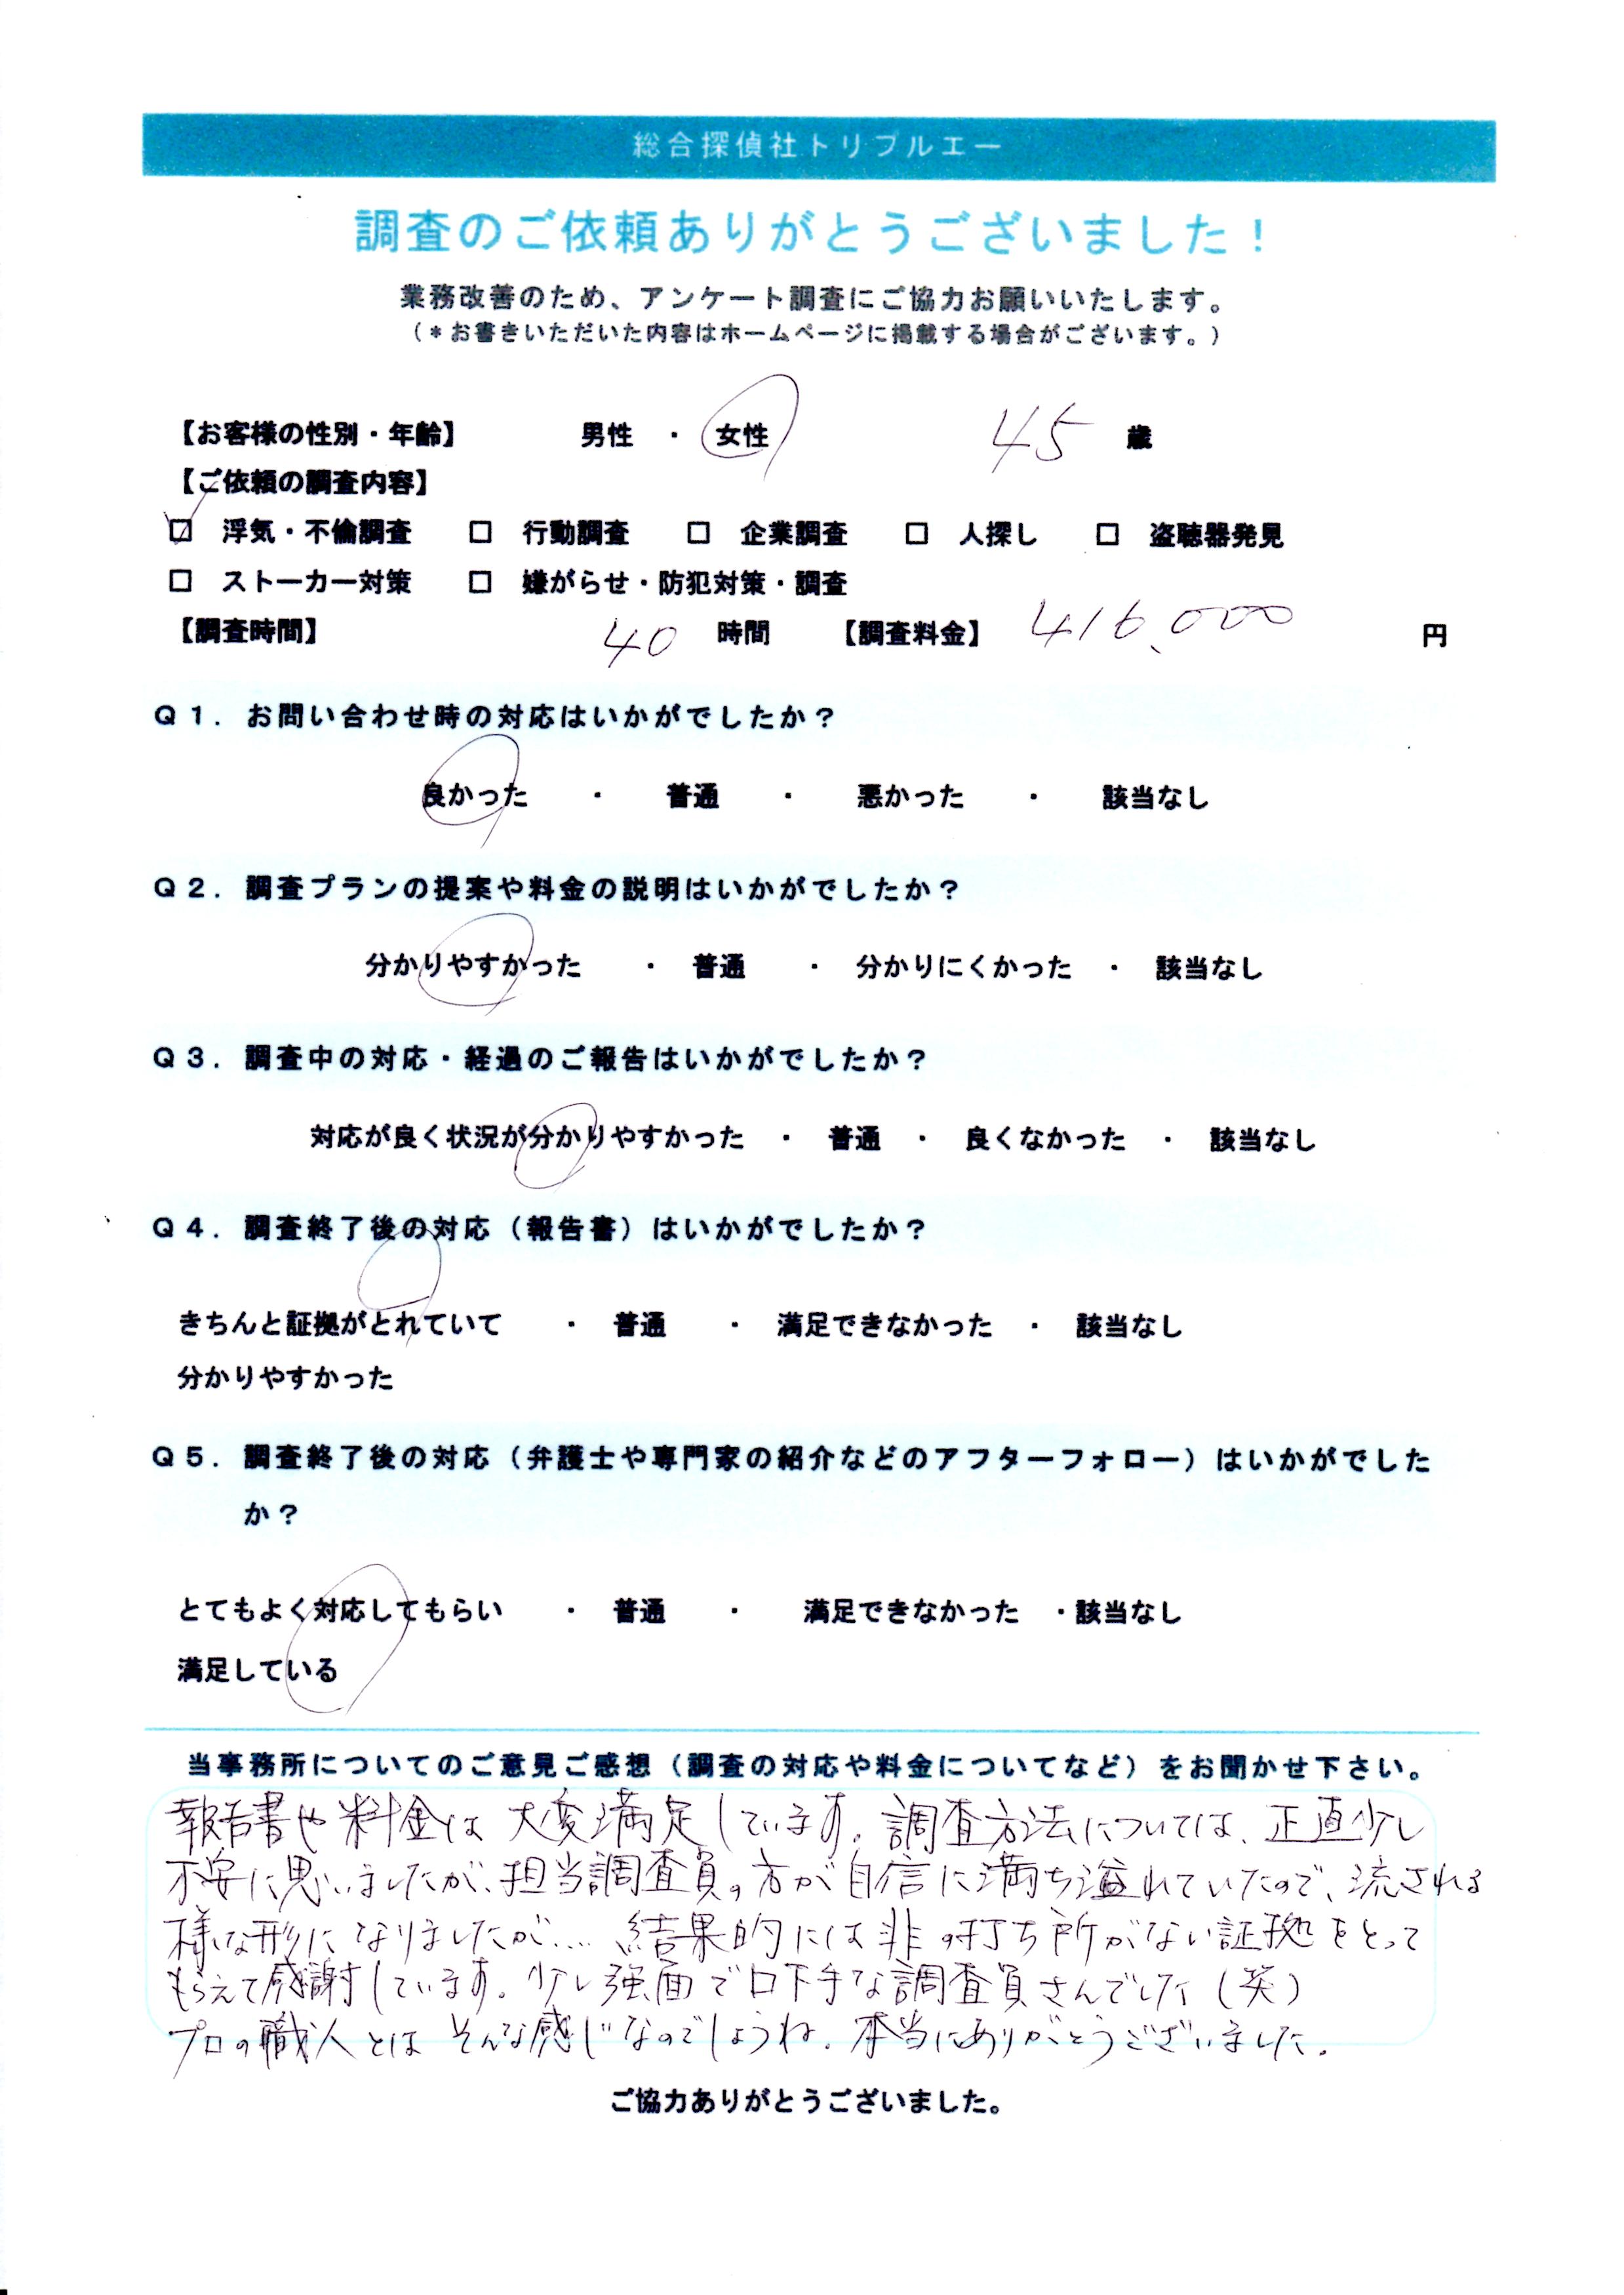 総合探偵社トリプルエー
調査のご依頼ありがとうございました！
業務改善のため、アンケート調査にご協力お願いいたします。
（＊お書きいただいた内容はホームページに掲載する場合がございます。）
【お客様の性別・年齢】 男性 ・ 女性 45 歳
【ご依頼の調査内容】
☑ 浮気・不倫調査 □ 行動調査 □ 企業調査 □ 人探し □ 盗聴器発見
□ ストーカー対策 □ 嫌がらせ・防犯対策・調査
【調査時間】 40 時間 【調査料金】 416、000 円
Ｑ１．お問い合わせ時の対応はいかがでしたか？
良かった ・ 普通 ・ 悪かった ・ 該当なし
Ｑ２．調査プランの提案や料金の説明はいかがでしたか？
分かりやすかった ・ 普通 ・ 分かりにくかった ・ 該当なし
Ｑ３．調査中の対応・経過のご報告はいかがでしたか？
対応が良く状況が分かりやすかった ・ 普通 ・ 良くなかった ・ 該当なし
Ｑ４．調査終了後の対応（報告書）はいかがでしたか？
きちんと証拠がとれていて ・ 普通 ・ 満足できなかった ・ 該当なし
分かりやすかった
Ｑ５．調査終了後の対応（弁護士や専門家の紹介などのアフターフォロー）はいかがでした
か？
とてもよく対応してもらい ・ 普通 ・ 満足できなかった ・該当なし
満足している
当事務所についてのご意見ご感想（調査の対応や料金についてなど）をお聞かせ下さい。
報告書や料金は大変満足しています。調査方法については、正直少し
不安に思いましたが、担当調査員の方が自信に満ち溢れていたので、流される
様な形になりましたが… 結果的には非の打ち所がない証拠をとって
もらえて感謝しています。少し強面で口下手な調査員さんでした（笑）
プロの職人とはそんな感じなのでしょうね。本当にありがとうございました。
ご協力ありがとうございました。